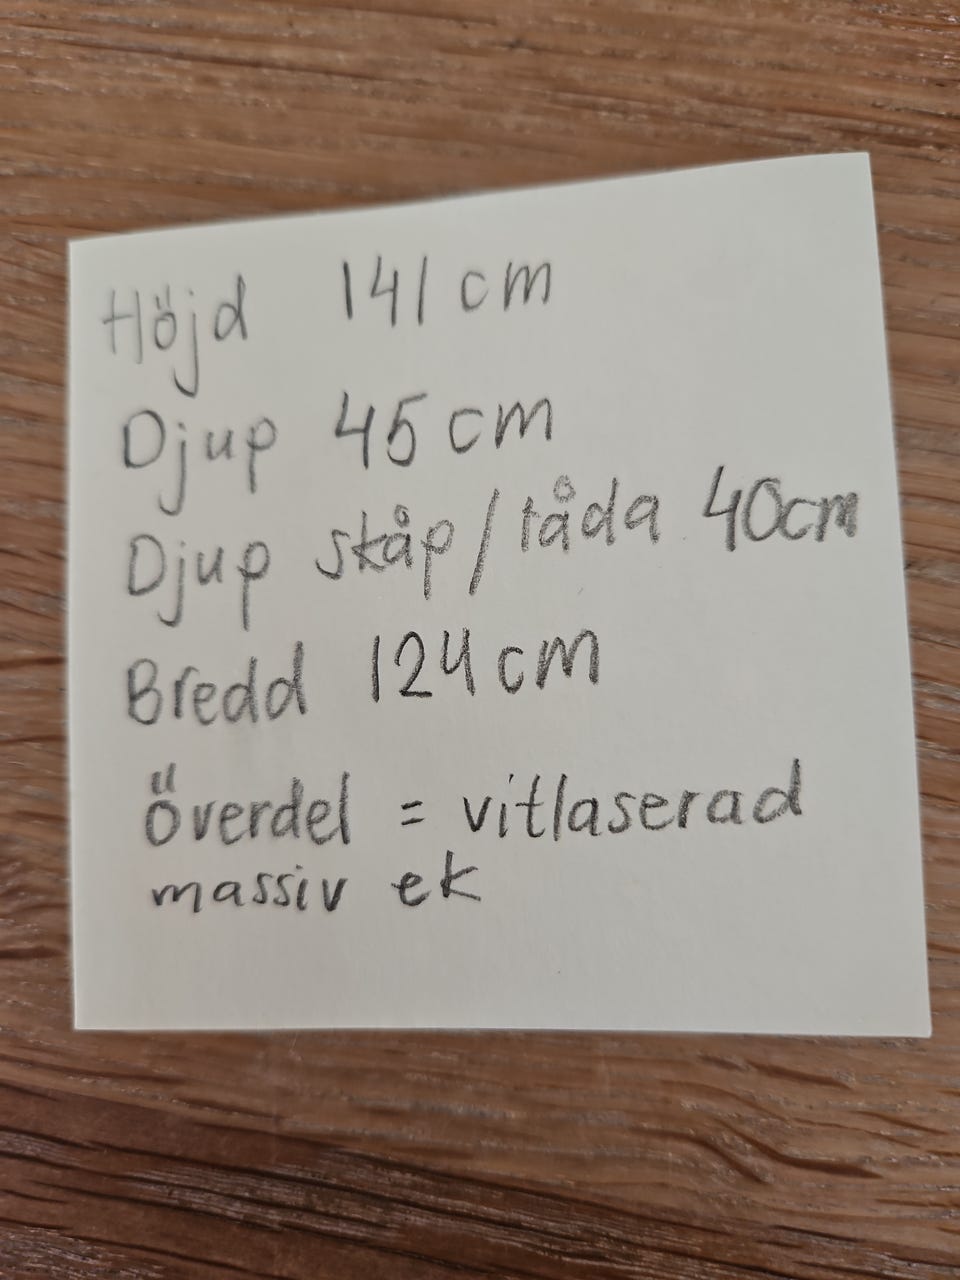 Höjd 141 cm
Djup 45 cm
Djup skåp/låda 40cm
Bredd 124 cm
Överdel = vitlaserad
massiv ek